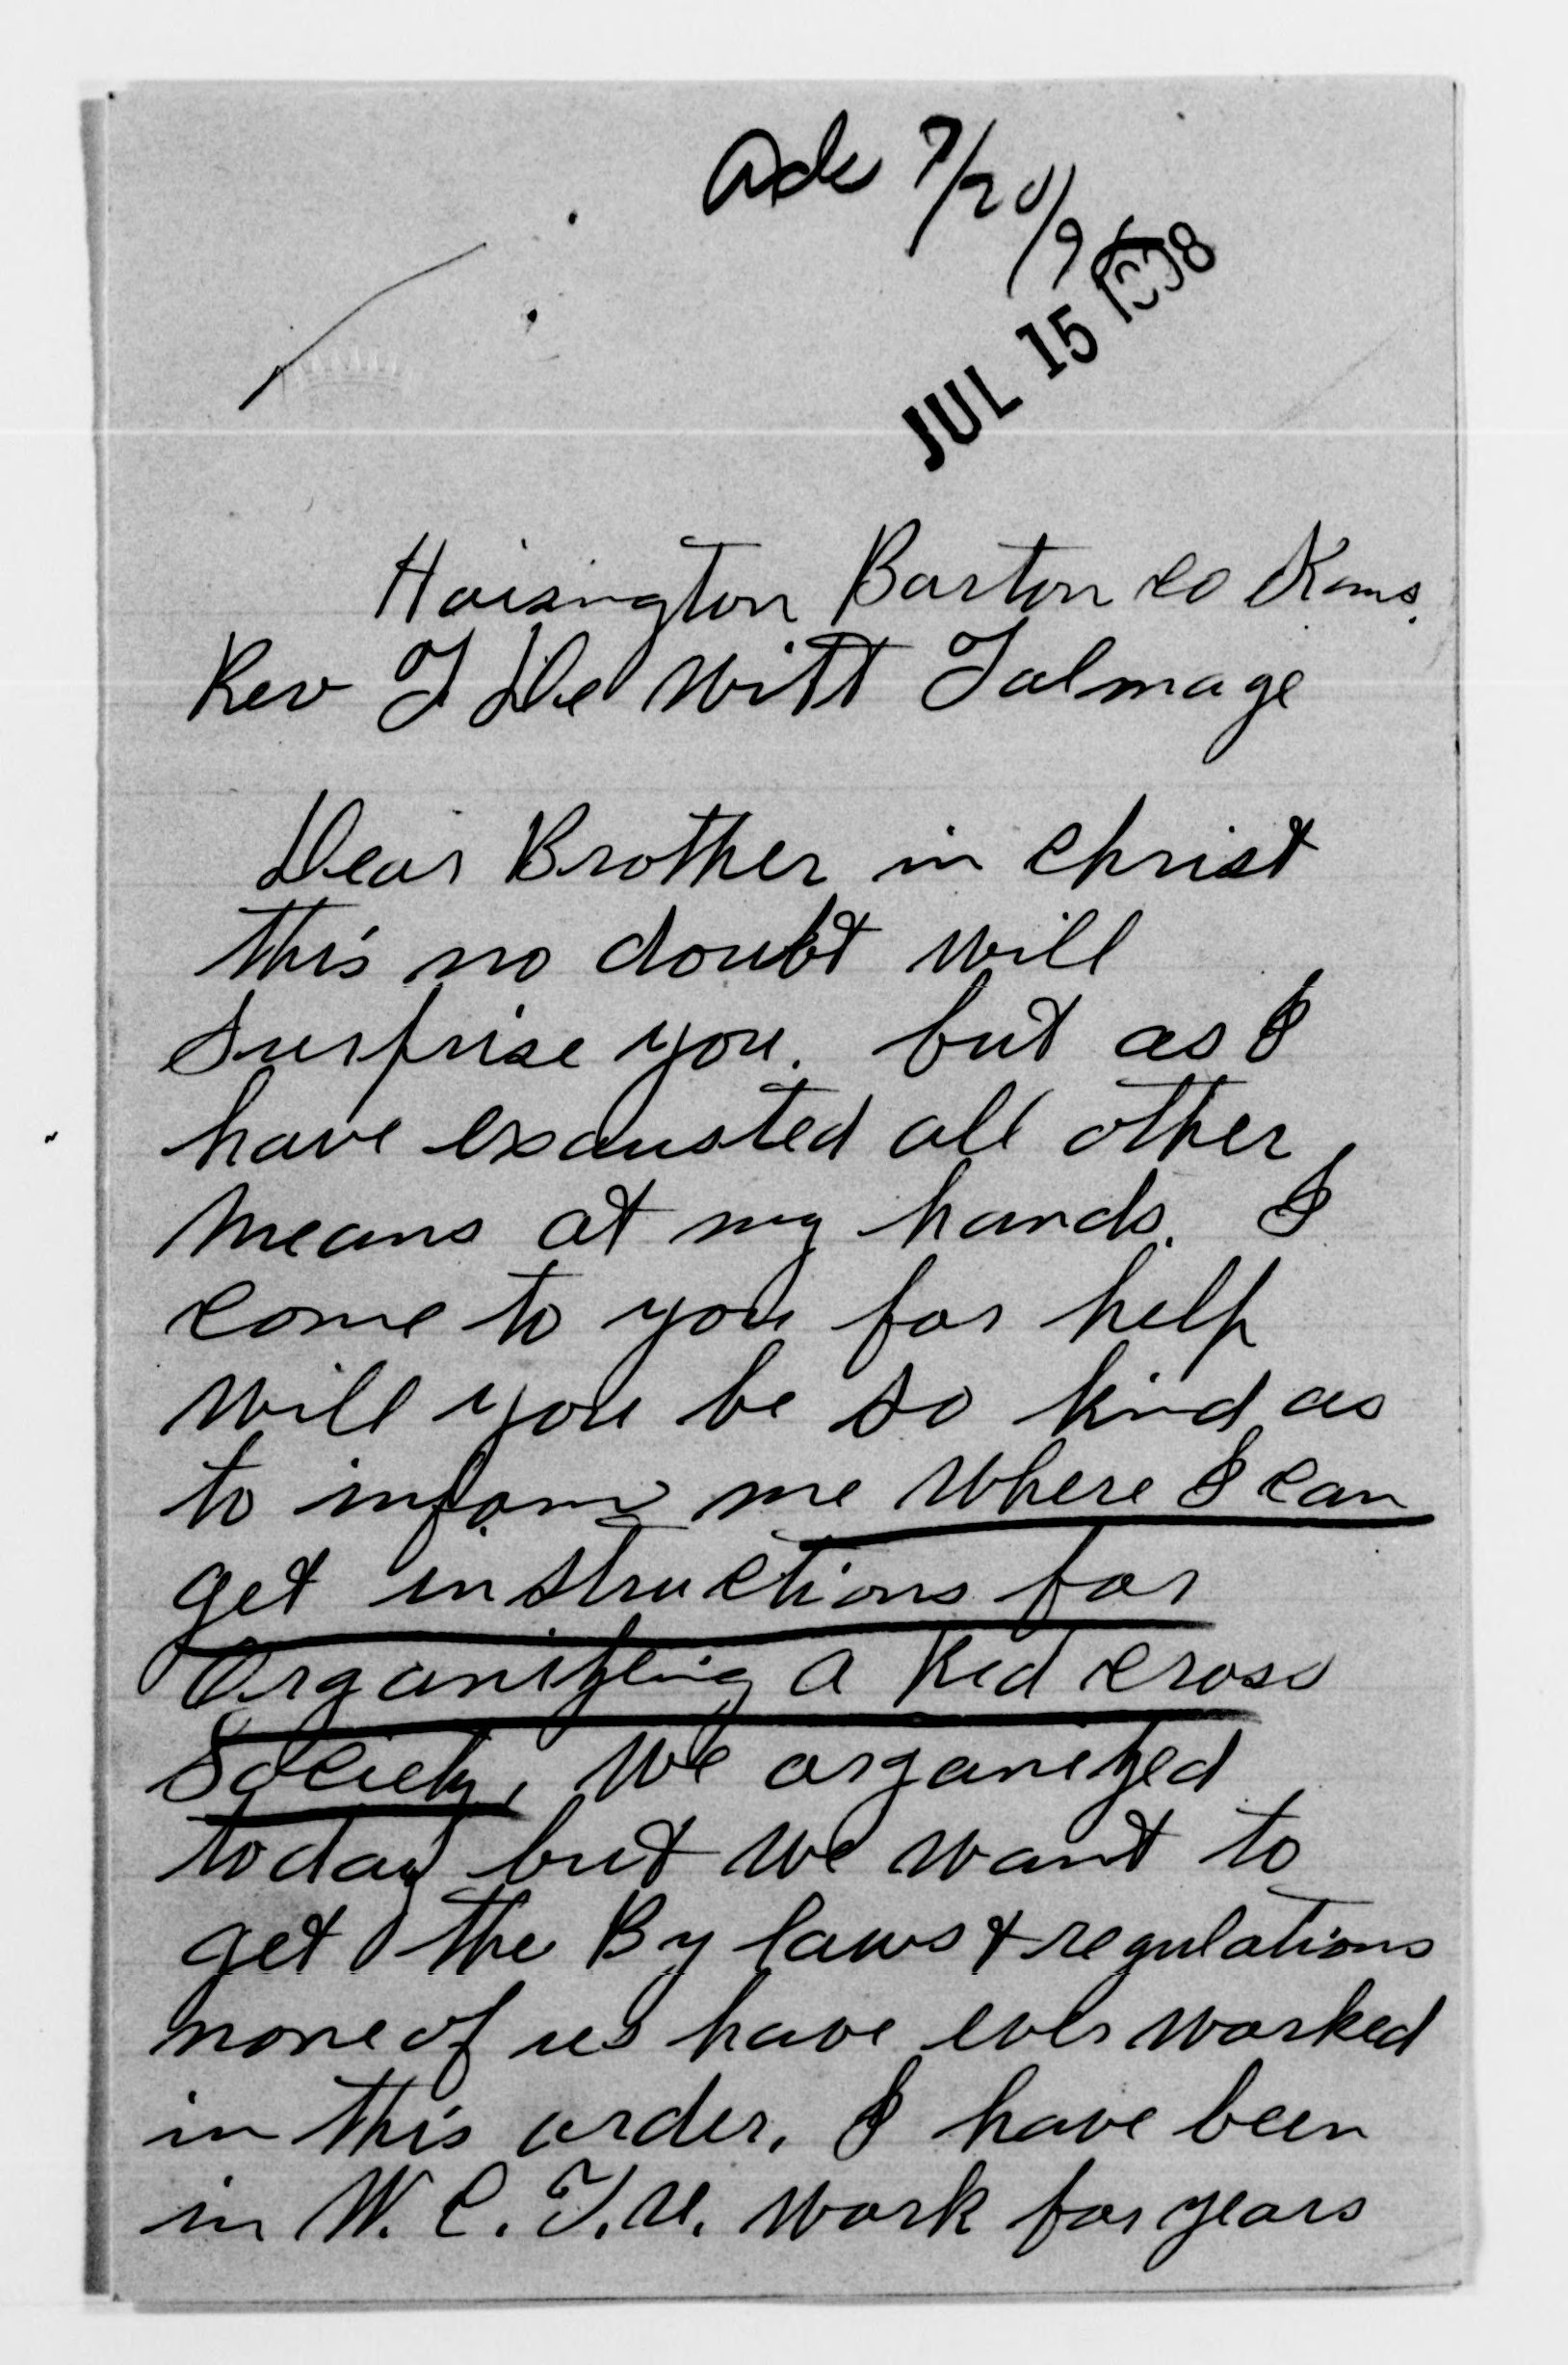 Ack 7/20/98
JUL 15 1898
Hoisington Barton co Kans.
Rev T De Witt Talmage
Dear Brother in Christ
this no doubt will
surprise you. but as I
have exausted all other
means at my hands. I
come to you for help
will you be so kind as
to inform me where I can
get instructions for
Organizeing a Red cross
Society, we organized
today but we want to
get the By laws & regulations
none of us have ever worked
in this order. I have been
in W. C. T. U. work for years